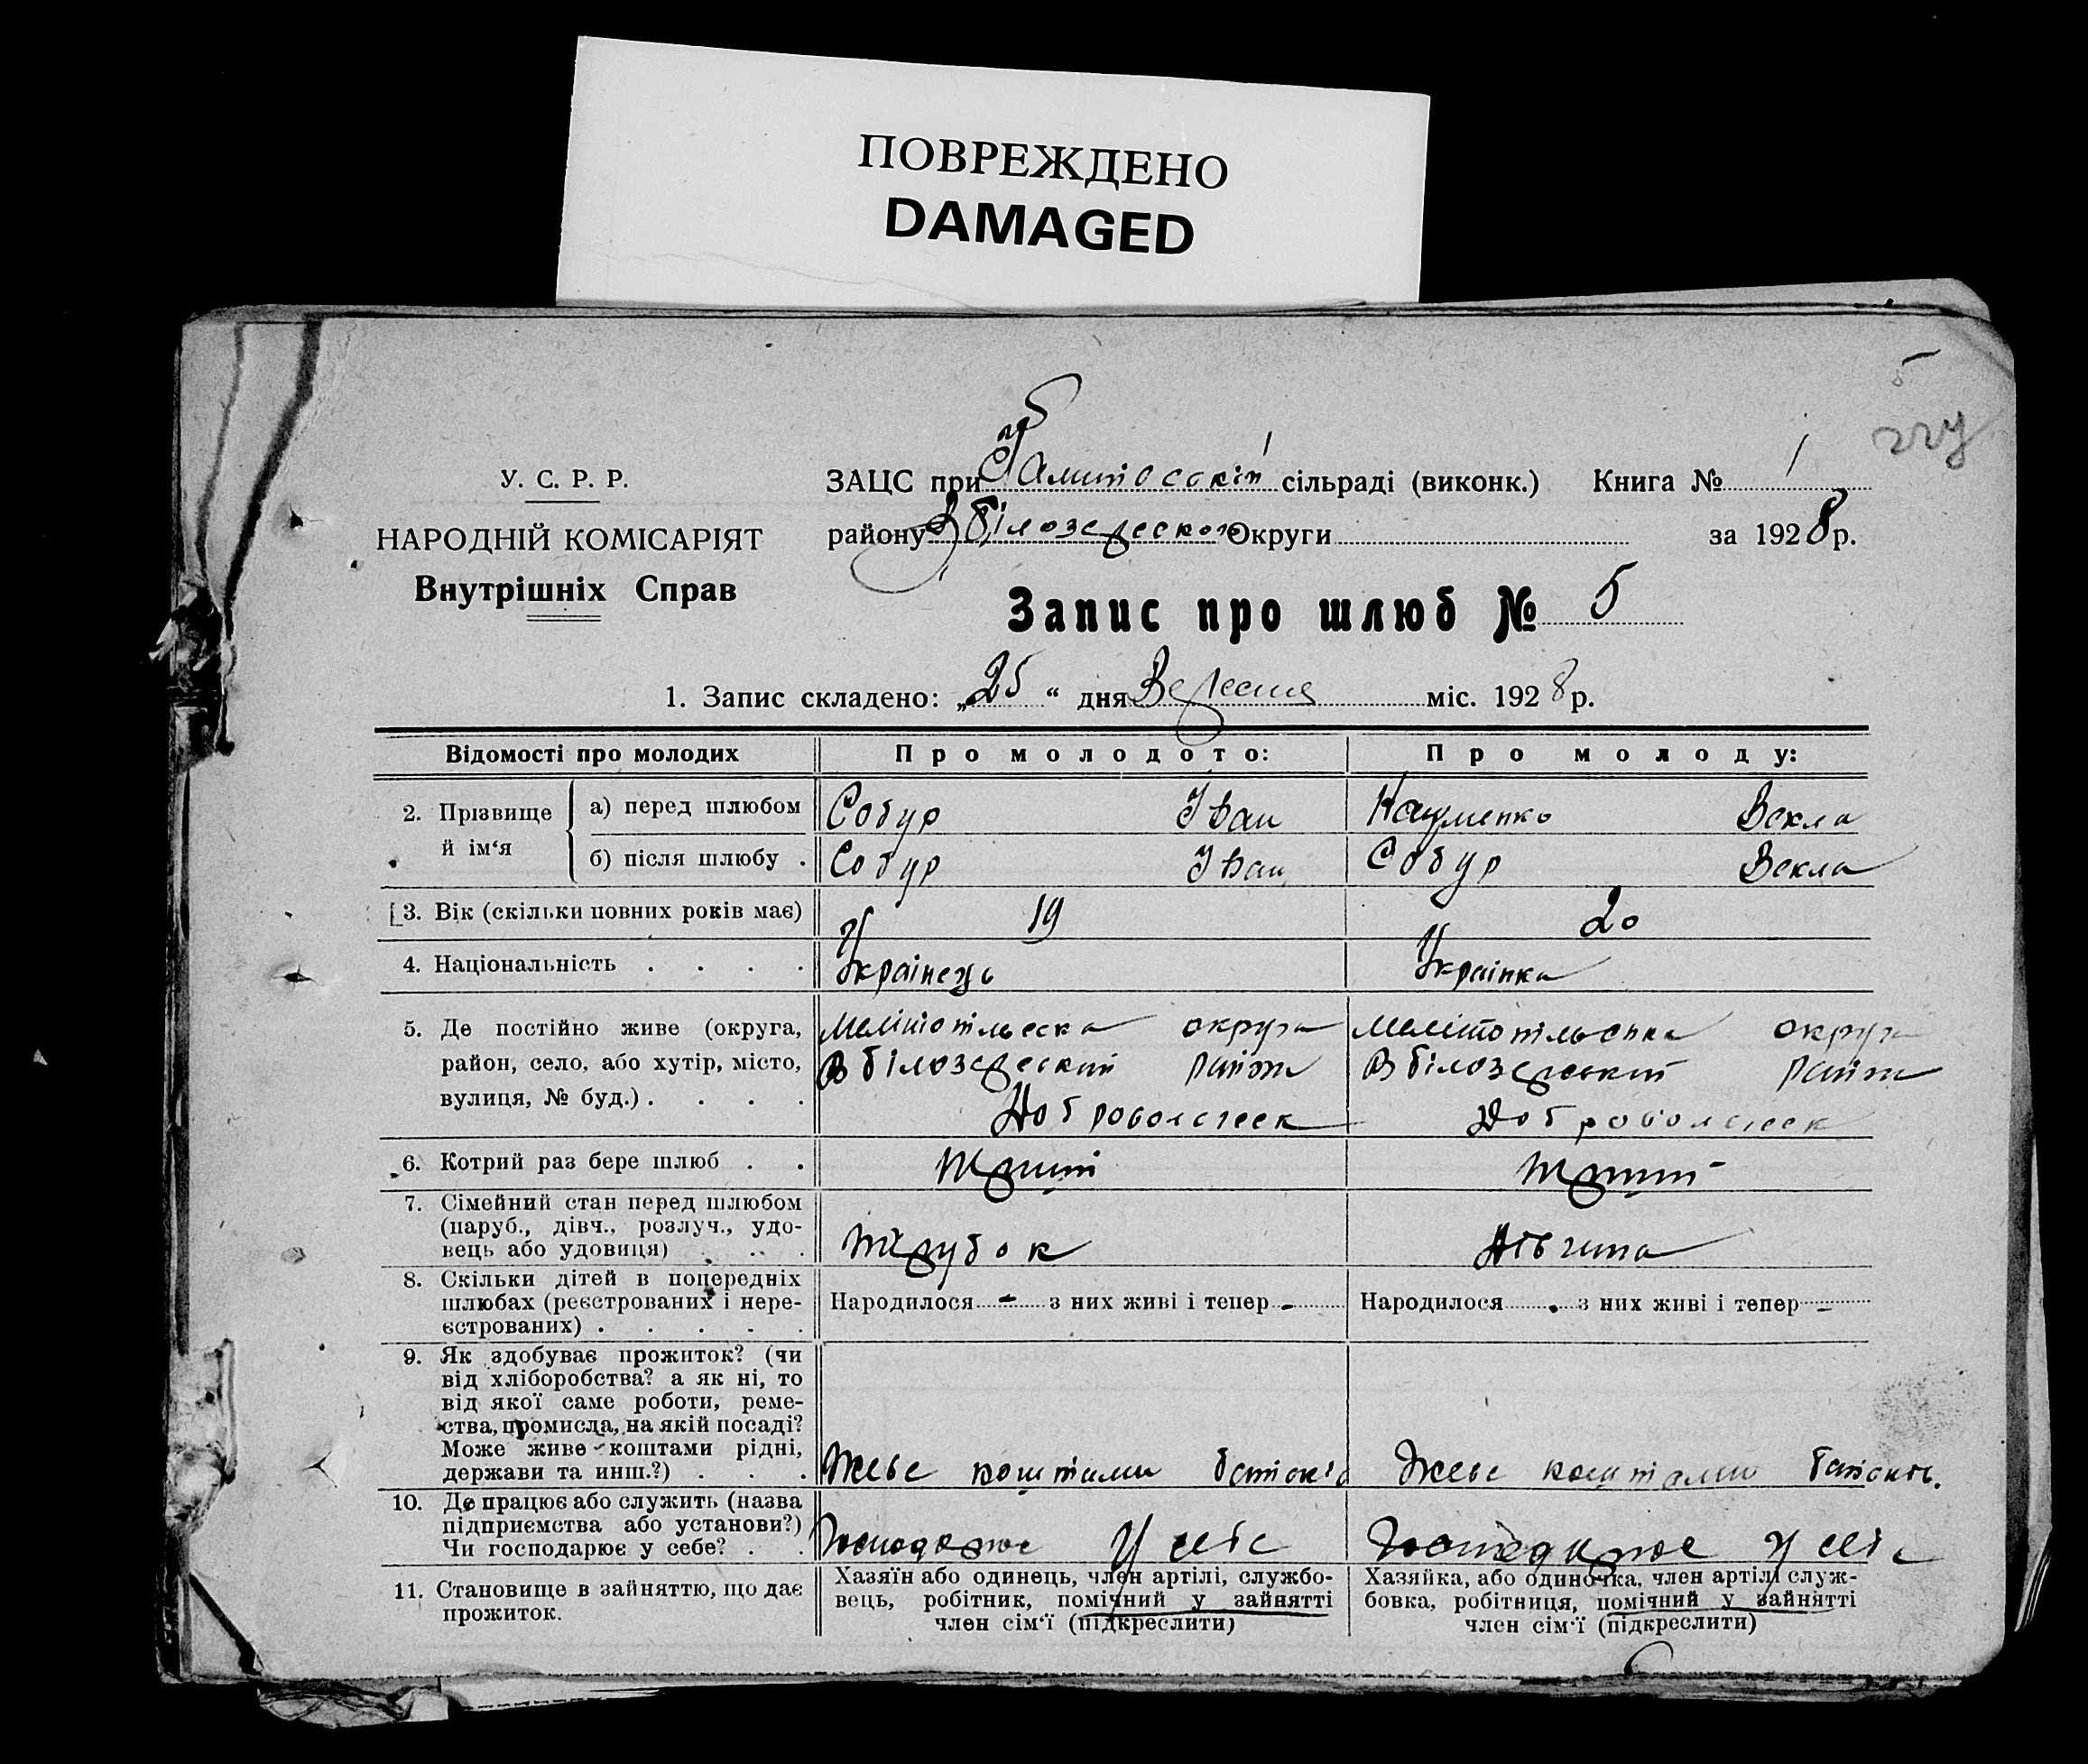 ПОВРЕЖДЕНО
DAMAGED
5
У. С. Р. Р.
НАРОДНІЙ КОМІСАРІЯТ
Внутрішніх Справ
ЗАЦС при сільраді (виконк.) Книга № 1
району В білозерського Округи за 1928 р.
Запис про шлюб № 5
1. Запис складено: „25“ дня Вересня міс. 1928 р.
Відомості про молодих Про молодого: Про молоду:
2. Прізвище й ім‘я а) перед шлюбом Собур Іван Науменко Векла
б) після шлюбу . Собур Іван Собур Векла
3. Вік (скільки повних років має) 19 20
4. Національність . . . . Українець Українка
5. Де постійно живе (округа, Мелітопільска округа Мелітопільська округа
район, село, або хутір, місто, В білозерський район В білозерський район
вулиця, № буд.) . . . .
6. Котрий раз бере шлюб . .
7. Сімейний стан перед шлюбом
(паруб., дівч., розлуч., удо-
вець або удовиця) . . . . Парубок Дівчина
8. Скільки дітей в попередніх
шлюбах (реєстрованих і нере- Народилося - з них живі і тепер - Народилося - з них живі і тепер -
єстрованих) . . . . .
9. Як здобуває прожиток? (чи
від хліборобства? а як ні, то
від якої саме роботи, реме-
ства, промисла, на якій посаді?
Може живе коштами рідні,
держави та инш.?) . . . Живе коштами батьків Живе коштами батьків.
10. Де працює або служить (назва
підприємства або установи?)
Чи господарює у себе? . . Господарює у селі Господарює у селі
11. Становище в зайняттю, що дає Хазяїн або одинець, член артілі, службо- Хазяйка, або одиночка, член артілі служ-
прожиток. вець, робітник, помічний у зайнятті бовка, робітниця, помічний у зайнятті
член сім‘ї (підкреслити) член сім‘ї (підкреслити)